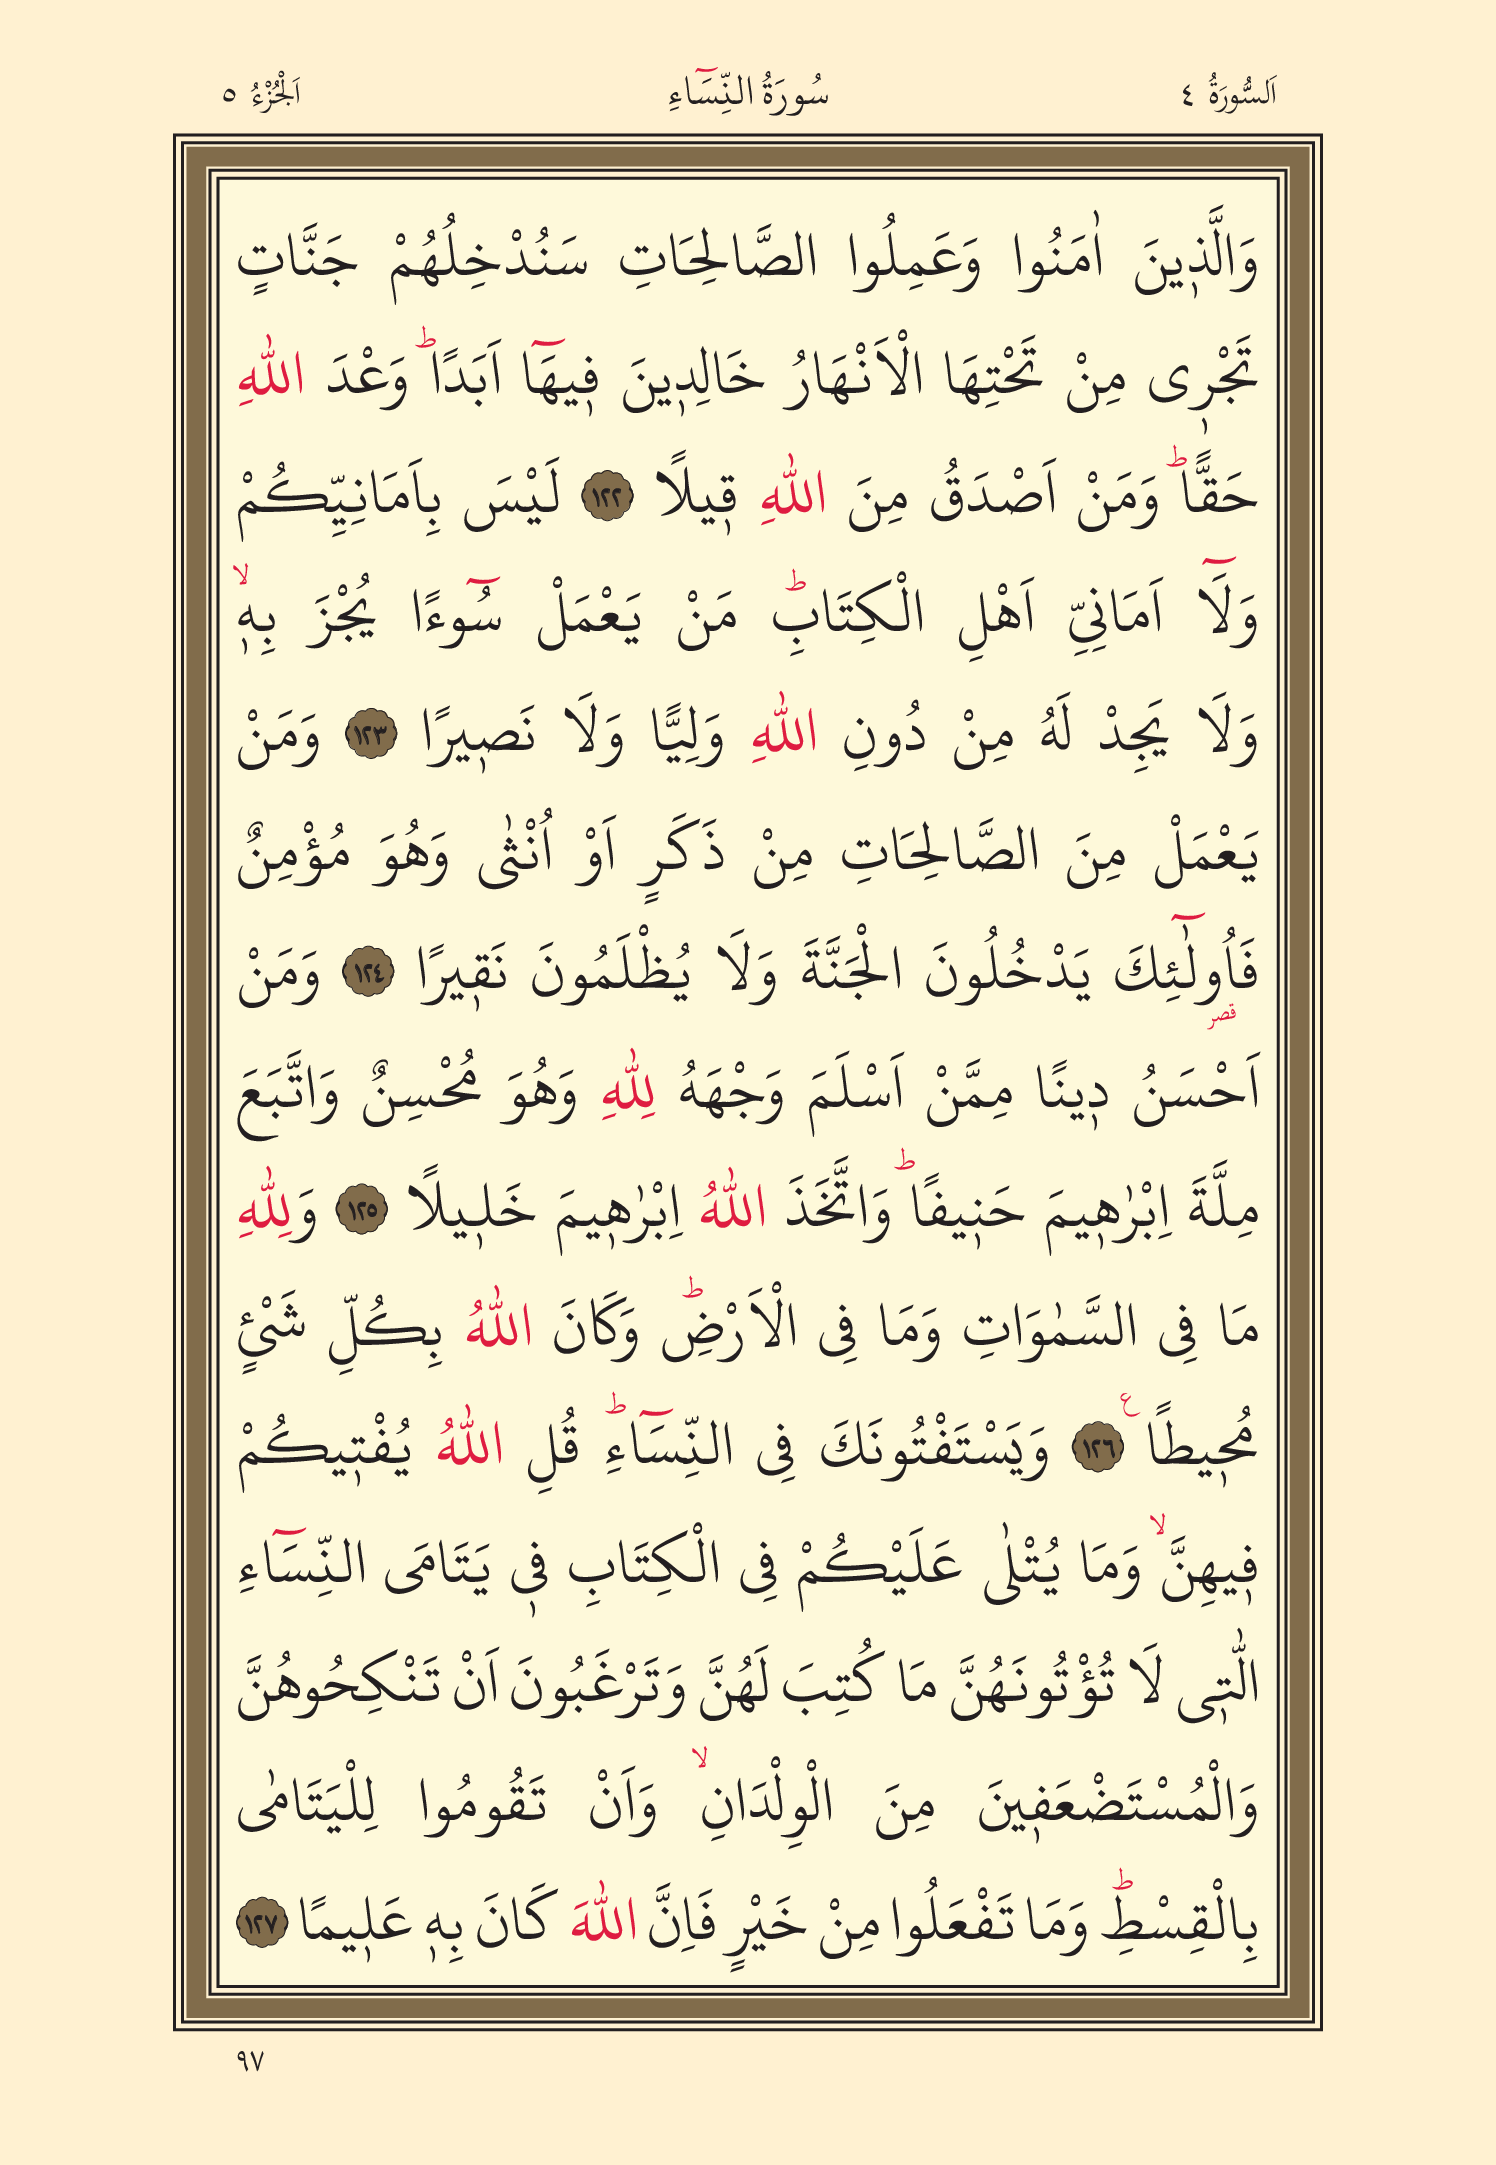 اَلسُّورَةُ ٤ سُورَةُ النِّسَٓاءِ اَلْجُزْءُ ٥
وَالَّذ۪ينَ اٰمَنُوا وَعَمِلُوا الصَّالِحَاتِ سَنُدْخِلُهُمْ جَنَّاتٍ
تَجْر۪ى مِنْ تَحْتِهَا الْاَنْهَارُ خَالِد۪ينَ ف۪يهَٓا اَبَدًاۜ وَعْدَ اللّٰهِ
حَقًّاۜ وَمَنْ اَصْدَقُ مِنَ اللّٰهِ ق۪يلًا ﴿١٢٢﴾ لَيْسَ بِاَمَانِيِّكُمْ
وَلَٓا اَمَانِىِّ اَهْلِ الْكِتَابِۜ مَنْ يَعْمَلْ سُٓوءًا يُجْزَ بِه۪ۙ
وَلَا يَجِدْ لَهُ مِنْ دُونِ اللّٰهِ وَلِيًّا وَلَا نَص۪يرًا ﴿١٢٣﴾ وَمَنْ
يَعْمَلْ مِنَ الصَّالِحَاتِ مِنْ ذَكَرٍ اَوْ اُنْثٰى وَهُوَ مُؤْمِنٌ
فَاُولٰٓئِكَ يَدْخُلُونَ الْجَنَّةَ وَلَا يُظْلَمُونَ نَق۪يرًا ﴿١٢٤﴾ وَمَنْ
قصر
اَحْسَنُ د۪ينًا مِمَّنْ اَسْلَمَ وَجْهَهُ لِلّٰهِ وَهُوَ مُحْسِنٌ وَاتَّبَعَ
مِلَّةَ اِبْرٰه۪يمَ حَن۪يفًاۜ وَاتَّخَذَ اللّٰهُ اِبْرٰه۪يمَ خَل۪يلًا ﴿١٢٥﴾ وَلِلّٰهِ
مَا فِى السَّمٰوَاتِ وَمَا فِى الْاَرْضِۜ وَكَانَ اللّٰهُ بِكُلِّ شَىْءٍ
مُح۪يطًا۟ ﴿١٢٦﴾ وَيَسْتَفْتُونَكَ فِى النِّسَٓاءِۜ قُلِ اللّٰهُ يُفْت۪يكُمْ
ف۪يهِنَّۙ وَمَا يُتْلٰى عَلَيْكُمْ فِى الْكِتَابِ ف۪ى يَتَامَى النِّسَٓاءِ
الّٰت۪ى لَا تُؤْتُونَهُنَّ مَا كُتِبَ لَهُنَّ وَتَرْغَبُونَ اَنْ تَنْكِحُوهُنَّ
وَالْمُسْتَضْعَف۪ينَ مِنَ الْوِلْدَانِۙ وَاَنْ تَقُومُوا لِلْيَتَامٰى
بِالْقِسْطِۜ وَمَا تَفْعَلُوا مِنْ خَيْرٍ فَاِنَّ اللّٰهَ كَانَ بِه۪ عَل۪يمًا ﴿١٢٧﴾
٩٧